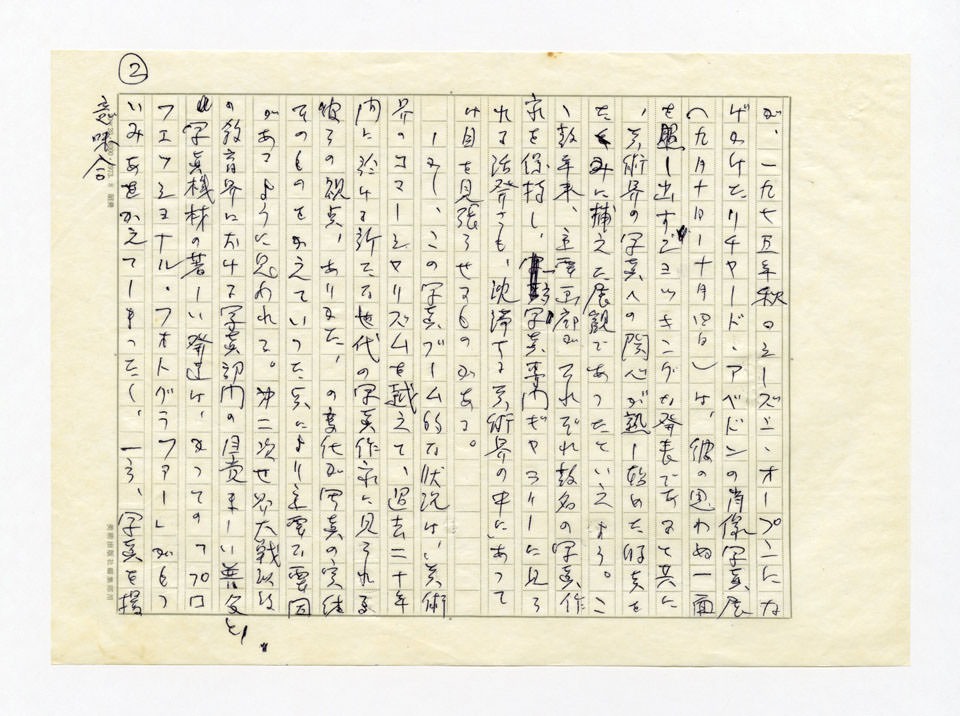 ②
が、一九七五年秋のシーズン・オープンにな
げかけたリチャード・アベドンの肖像写真展
(九月十日ー十月四日)は、彼の思わぬ一面
を照し出すショッキングな発表であると共に
、美術界の写真への関心が熟し始めた時点を
たくみに捕えた展観であったといえよう。こ
ゝ数年来、主要画廊が それぞれ数名の写真作
家を保持し、写真専門ギャラリーに見ら
れる活発さも、沈滞する美術界の中にあって
目を見張らせるものがある。
しかし、この写真ブーム的な状況は、美術
界のコマーシャリズムを越えて、過去二十年
内に於ける新たな世代の写真作家に見られる
彼らの視点、ありかた、の変化が写真の実体
そのものをかえていった点により主要な要因
があるように思われる。第二次世界大戦以後
の教育界における写真部門の目覚ましい普及と、
写真機材の著しい発達は、かつての「プロ
フェッショナル・フォトグラファー」がもつ
いみあいをかえてしまったし、一方、写真を撮
意味合
美術出版社編集部用